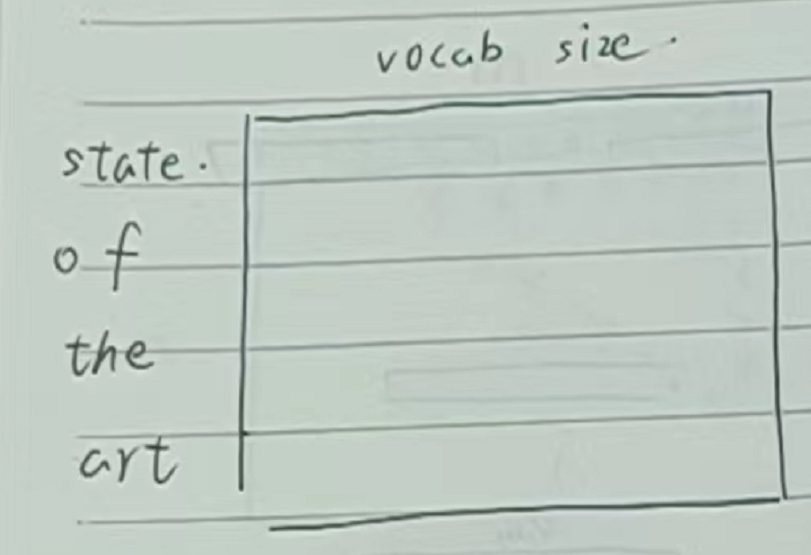 vocab size.
state.
of
the
art